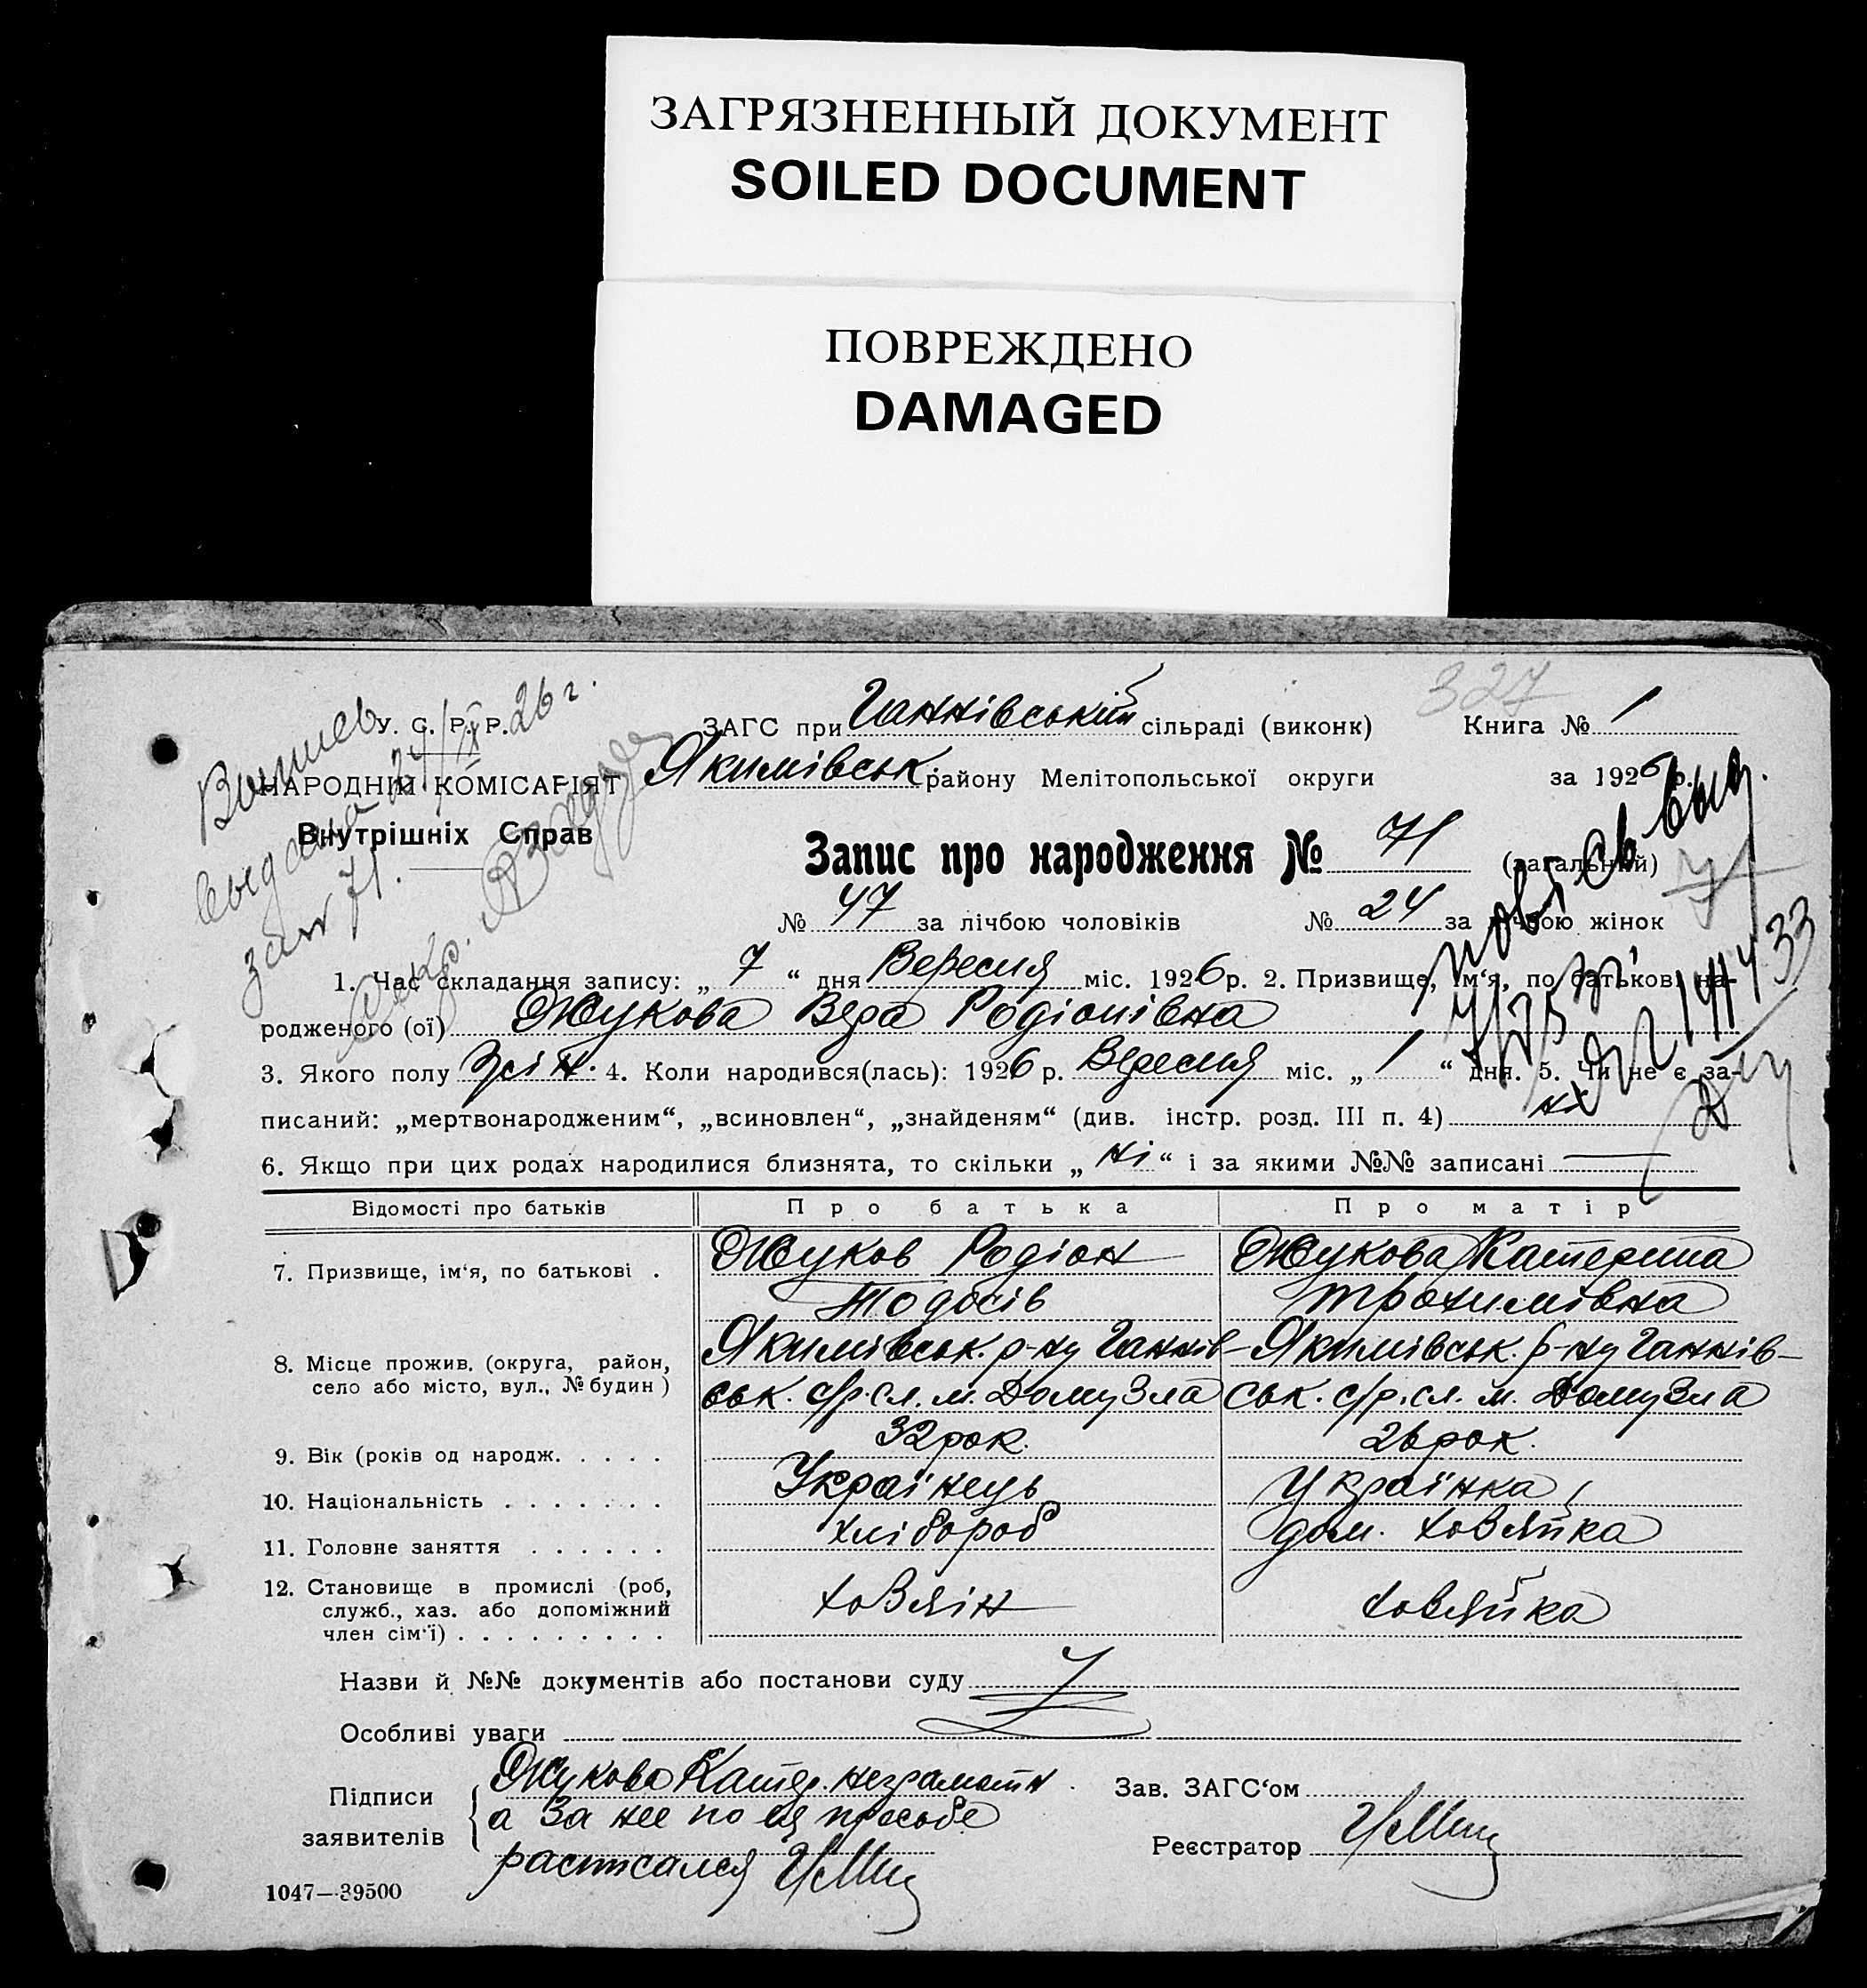 ЗАГРЯЗНЕННЫЙ ДОКУМЕНТ
SOILED DOCUMENT
ПОВРЕЖДЕНО
DAMAGED
327
У. С. Р. Р.
НАРОДНІЙ КОМІСАРІЯТ
Внутрішніх Справ
24/IX 26 г.
71.
ЗАГС при Ганнівській сільраді (виконк) Книга № 1
Якимівськ. району Мелітопольської округи за 1926 р.
Запис про народження № 71 (загальний)
№ 47 за лічбою чоловіків № 24 за лічбою жінок
1. Час складання запису: „ 7 “ дня Вересня міс. 1926 р. 2. Призвище, ім‘я, по батькові на-
родженого (ої) Жукова Вера Родіонівна
3. Якого полу жін. 4. Коли народився(лась): 1926 р. Вересня міс. „ 1 “ дня. 5. Чи не є за-
писаний: „мертвонародженим“, „всиновлен“, „знайденям“ (див. інстр. розд. III п. 4) ні
6. Якщо при цих родах народилися близнята, то скільки „ ні “ і за якими №№ записані —
Відомості про батьків Про батька Про матір
7. Призвище, ім‘я, по батькові . Жуков Родіон Жукова Катерина
Тодосів Трохимівна
8. Місце прожив. (округа, район, Якимівськ. р-ну Ганнів- Якимівськ. р-ну Ганнів-
село або місто, вул., № будин) ськ. с/р. сл. м. Домузла ськ. с/р. сл. м. Домузла
9. Вік (років од народж. . . . . 32 рок. 26 рок.
10. Національність . . . . . . . Українець Українка
11. Головне заняття . . . . . . хлібороб дом. хозяйка
12. Становище в промислі (роб, хозяін хозяйка
служб., хаз. або допоміжний
член сім‘ї) . . . . . . . . .
Назви й №№ документів або постанови суду
Особливі уваги
Підписи заявителів Жукова Катер. неграмотн
а За нее по ея прозьбе
расписался
Зав. ЗАГС‘ом
Реєстратор
1047—39500